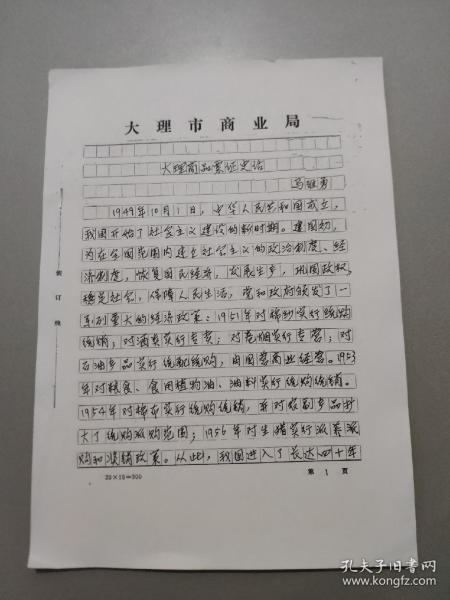 大理市商业局
大理商品票证史话
马
1949年10月1日，中华人民共和国成立，
我国开始了社会主义建设的新时期。建国初，
为在全国范围内建立社会主义的政治制度、经
济制度，恢复国民经济，发展生产，巩固政权，
稳定社会，保障人民生活，党和政府颁发了一
系列重大的经济政策：1951年对棉纱实行统购
统销；对酒类实行专卖；对卷烟实行专营；对
石油产品实行统配统购，由国营商业经营。1953
年对粮食、食用植物油、油料实行统购统销。
1954年对棉布实行统购统销，并对农副产品扩
大了统购派购范围；1956年对生猪实行派养派
购和奖销政策。从此，我国进入了长达四十年
20×15=300
第1页
装订线
孔夫子旧书网
www.kongfz.com